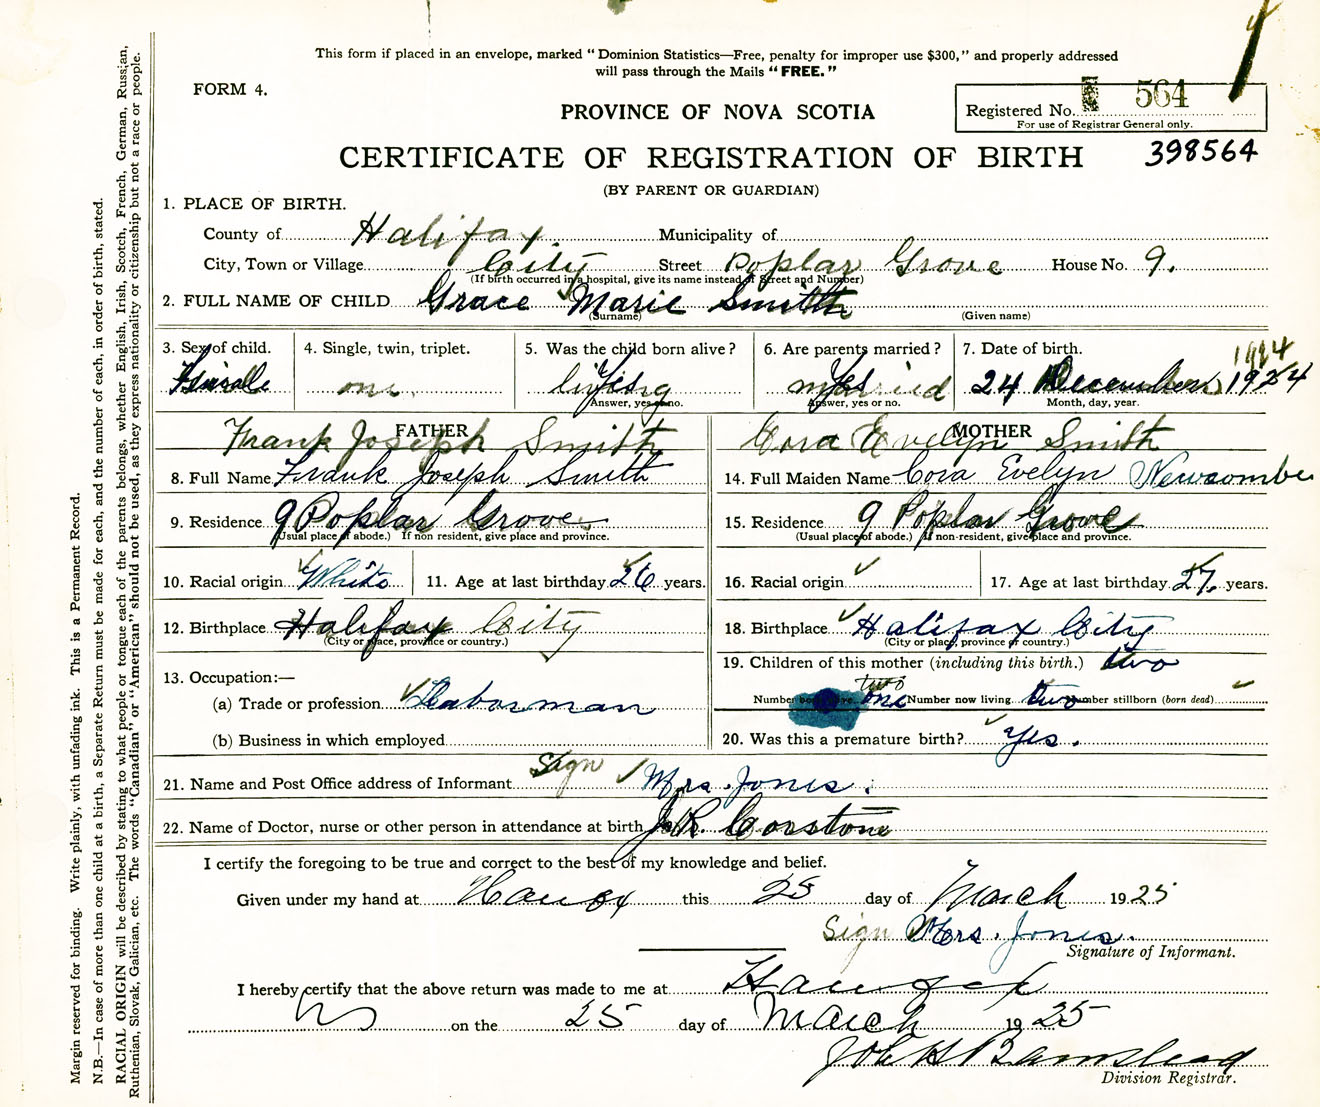 This form if placed in an envelope, marked "Dominion Statistics—Free, penalty for improper use $300," and properly addressed
will pass through the Mails "FREE."
FORM 4.
Registered No. 564
For use of Registrar General only.
PROVINCE OF NOVA SCOTIA
CERTIFICATE OF REGISTRATION OF BIRTH 398564
(BY PARENT OR GUARDIAN)
1. PLACE OF BIRTH.
County of Halifax. Municipality of
City, Town or Village City Street Poplar Grove House No. 9.
(If birth occurred in a hospital, give its name instead of Street and Number)
2. FULL NAME OF CHILD Grace Marie Smith
(Surname) (Given name)
3. Sex of child. 4. Single, twin, triplet. 5. Was the child born alive? 6. Are parents married? 7. Date of birth. 1924
Female one. living Yes married Yes 24 December 1924
Answer, yes or no. Answer, yes or no. Month, day, year.
FATHER MOTHER
Frank Joseph Smith Cora Evelyn Smith
8. Full Name Frank Joseph Smith 14. Full Maiden Name Cora Evelyn Newcombe
9. Residence 9 Poplar Grove 15. Residence 9 Poplar Grove
(Usual place of abode.) If non resident, give place and province. (Usual place of abode.) If non-resident, give place and province.
10. Racial origin White 11. Age at last birthday 26 years. 16. Racial origin 17. Age at last birthday 27. years.
12. Birthplace Halifax City 18. Birthplace Halifax City
(City or place, province or country.) (City or place, province or country.)
13. Occupation:— 19. Children of this mother (including this birth.) two
two
(a) Trade or profession Laborman Number one Number now living two Number stillborn (born dead)
(b) Business in which employed 20. Was this a premature birth? Yes.
Sign
21. Name and Post Office address of Informant Mrs. Jones.
22. Name of Doctor, nurse or other person in attendance at birth J. R. Corston
I certify the foregoing to be true and correct to the best of my knowledge and belief.
Given under my hand at this 25 day of March 1925
Sign Mrs. Jones.
Signature of Informant.
I hereby certify that the above return was made to me at
on the 25 day of March 1925
Division Registrar.
Margin reserved for binding. Write plainly, with unfading ink. This is a Permanent Record.
N.B.—In case of more than one child at a birth, a Separate Return must be made for each, and the number of each, in order of birth, stated.
RACIAL ORIGIN will be described by stating to what people or tongue each of the parents belongs, whether English, Irish, Scotch, French, German, Russian,
Ruthenian, Slovak, Galician, etc. The words "Canadian" or "American" should not be used, as they express nationality or citizenship but not a race or people.